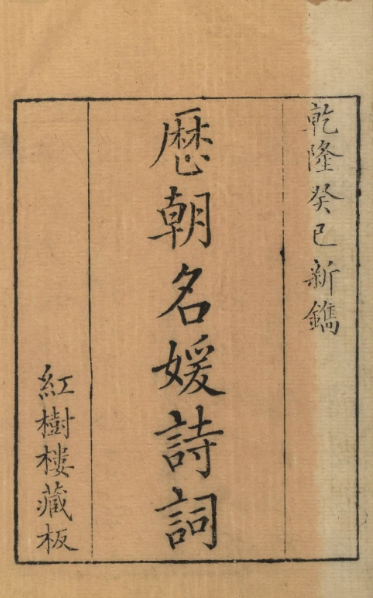 乾隆癸巳新鐫
歴朝名媛詩詞
紅樹楼藏板